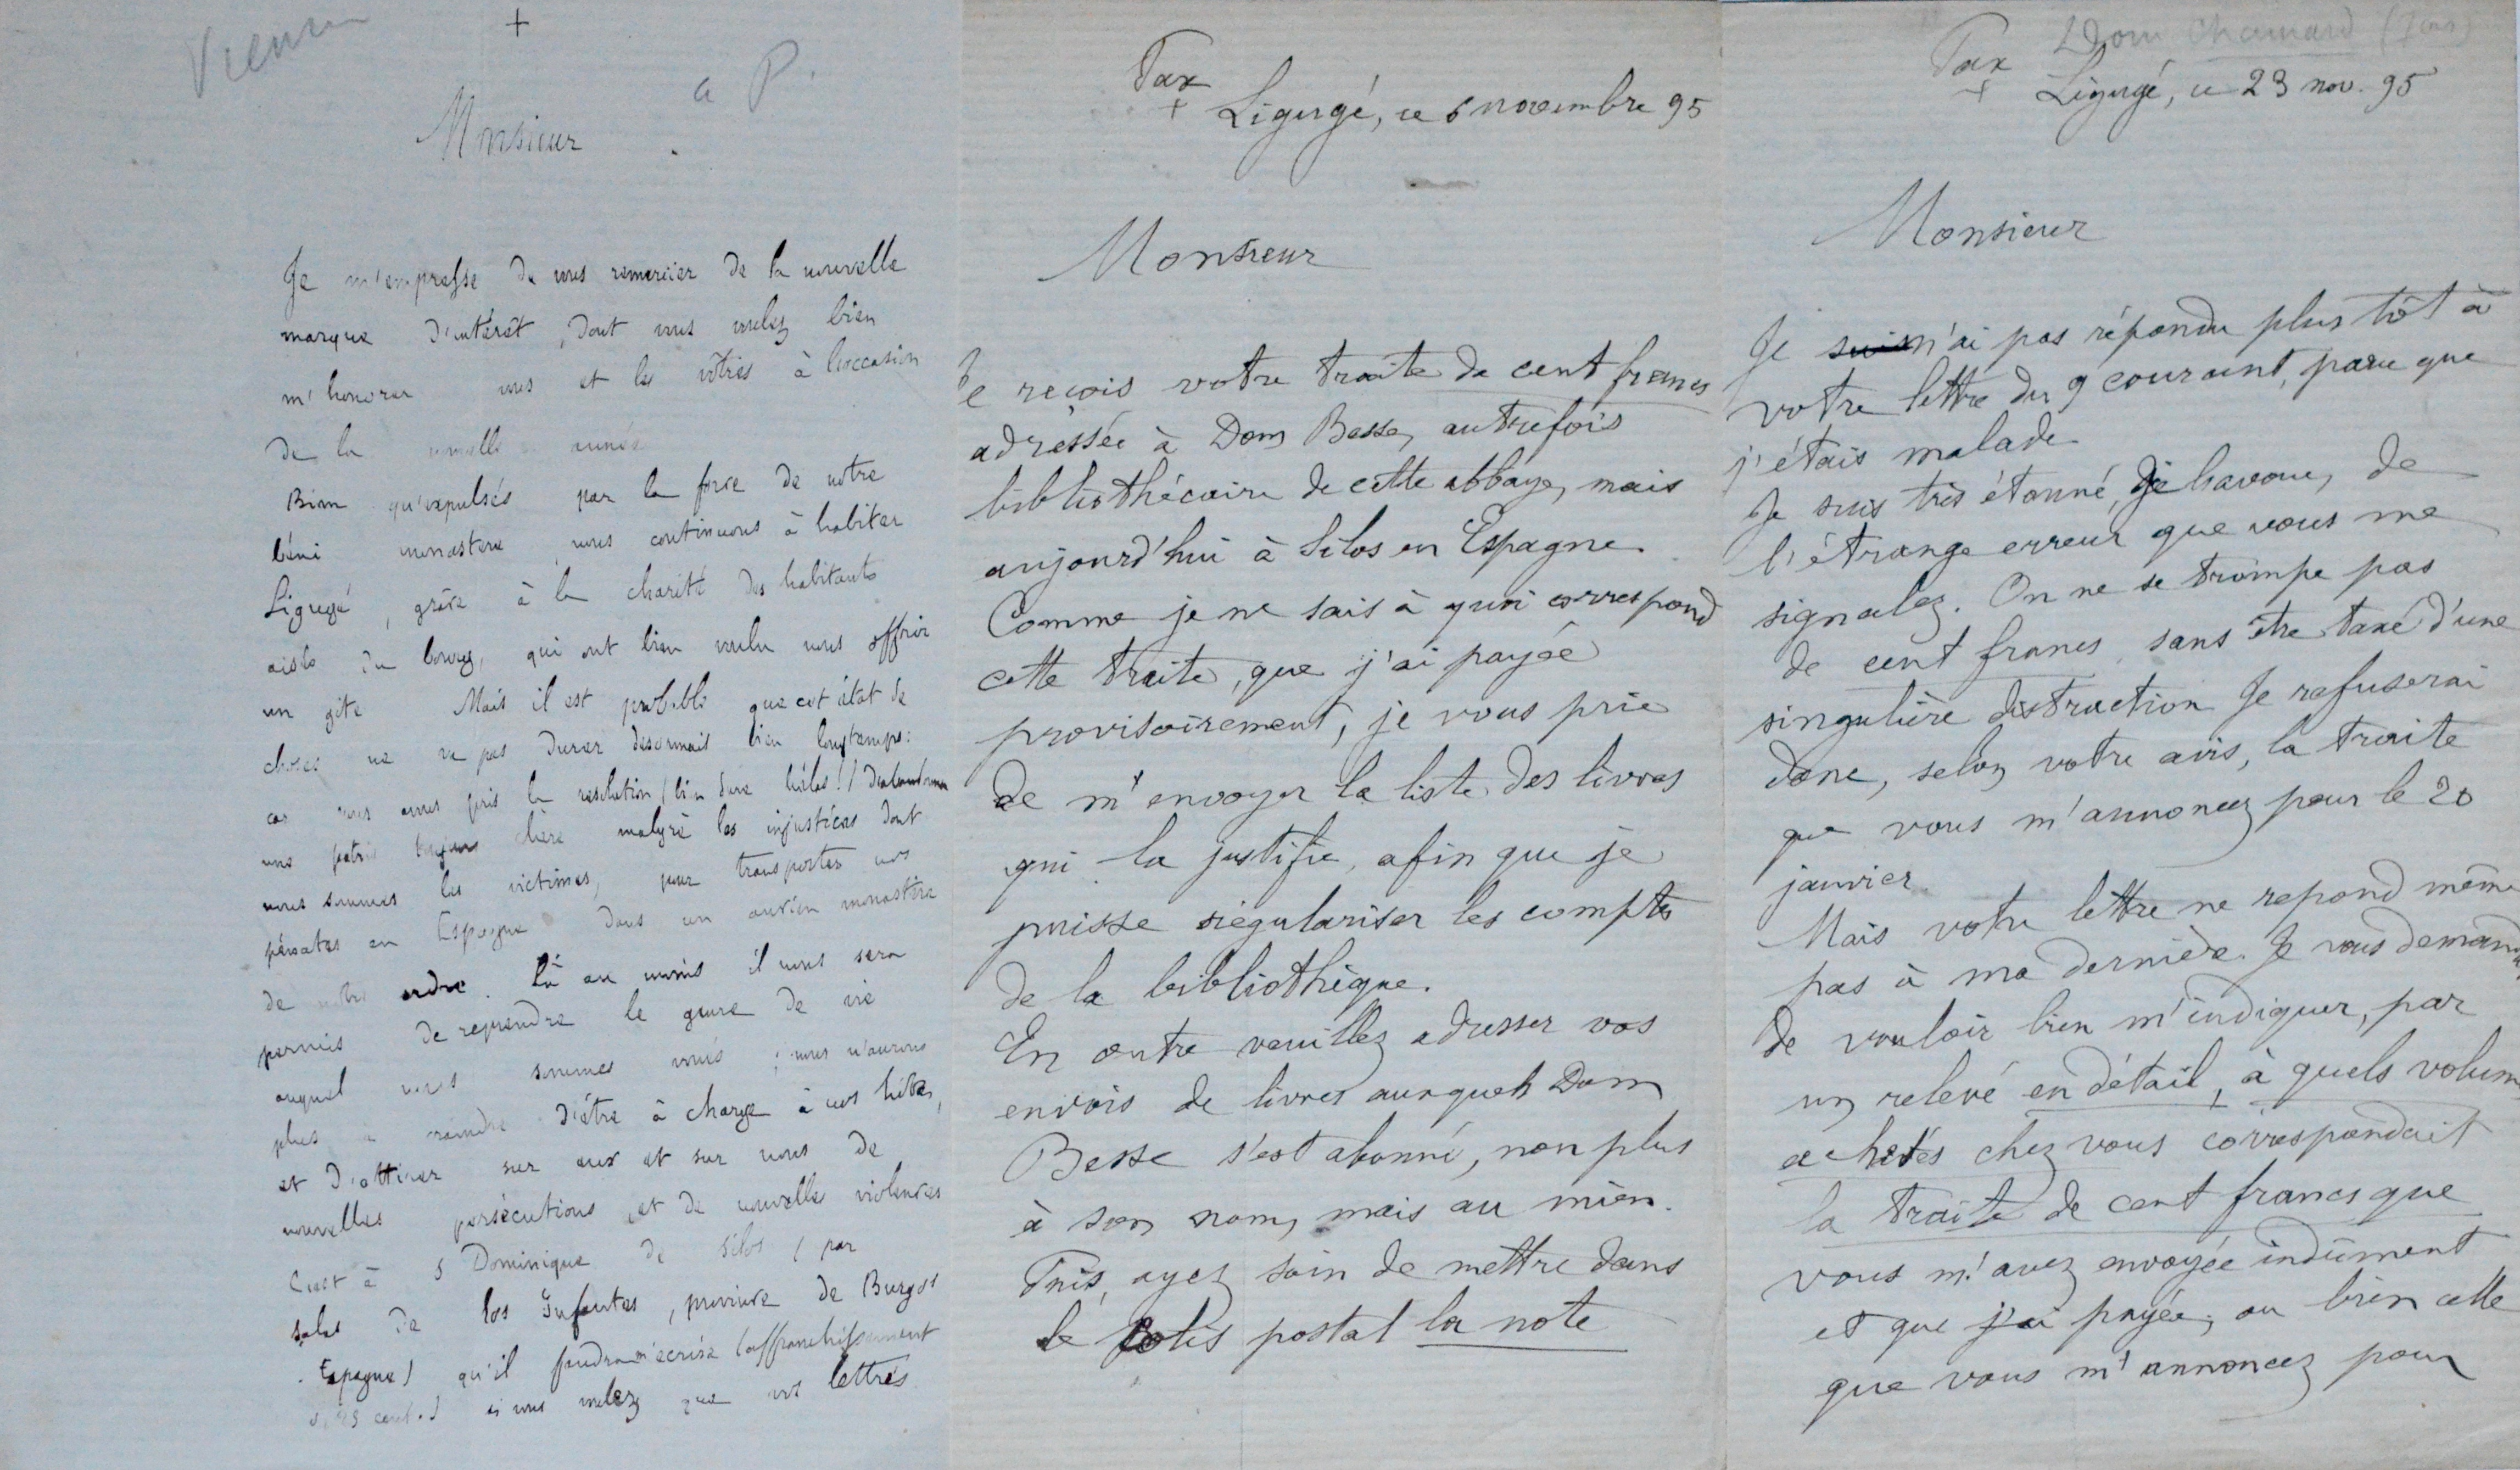 Vienne
+
a P.
Monsieur
Je m'empresse de vous remercier de la nouvelle
marque d'intérêt, dont vous voulez bien
m'honorer vous et les vôtres à l'occasion
de la nouvelle année
Bien qu'expulsés par la force de notre
béni monastere nous continuons à habiter
Ligugé, grâce à la charité des habitants
du bourg, qui ont bien voulu nous offrir
un gite Mais il est probable que cet état de
choses ne va pas durer désormais bien longtemps:
car nous avons pris la resolution (bien dure hélas!) d'abandonner
une patrie toujours chère malgré les injustices dont
nous sommes les victimes, pour transporter nos
pénates en Espagne dans un ancien monastère
de notre ordre. Là au moins il nous sera
permis de reprendre le genre de vie
auquel nous sommes voués ; nous n'aurons
plus à craindre d'être à charge à nos hôtes,
et d'attirer sur eux et sur nous de
nouvelles persécutions, et de nouvelles violences
C'est à S Dominique de Silos, (par
Salas de los Infantes, province de Burgos
Espagne) qu'il faudra m'écrire (affranchissement
25 cent.) si vous voulez que vos lettres
Pax
+
Ligugé, ce 6 novembre 95
Monsieur
Je reçois votre traite de cent francs
adressée à Dom Besse, autrefois
bibliothécaire de cette abbaye, mais
aujourd'hui à Silos en Espagne.
Comme je ne sais à quoi correspond
cette traite, que j'ai payée
provisoirement, je vous prie
de m'envoyer la liste des livres
qui la justifie, afin que je
puisse régulariser les comptes
de la bibliothèque.
En outre veuillez adresser vos
envois de livres auxquels Dom
Besse s'est abonné, non plus
à son nom, mais au mien.
Puis, ayez soin de mettre dans
le colis postal la note
Dom Chamard
Pax
+
Ligugé, ce 23 nov. 95
Monsieur
Je suis n'ai pas répondu plus tôt à
votre lettre du 9 courant, parce que
j'étais malade
Je suis très étonné, je l'avoue, de
l'étrange erreur que vous me
signalez. On ne se trompe pas
de cent francs sans être taxé d'une
singulière distraction Je refuserai
donc, selon votre avis, la traite
que vous m'annoncez pour le 20
janvier.
Mais votre lettre ne repond même
pas à ma dernière. Je vous demande
de vouloir bien m'indiquer, par
un relevé en détail, à quels volum
achetés chez vous correspondait
la traite de cent francs que
vous m'avez envoyée indûment
et que j'ai payée, ou bien celle
que vous m'annoncez pour